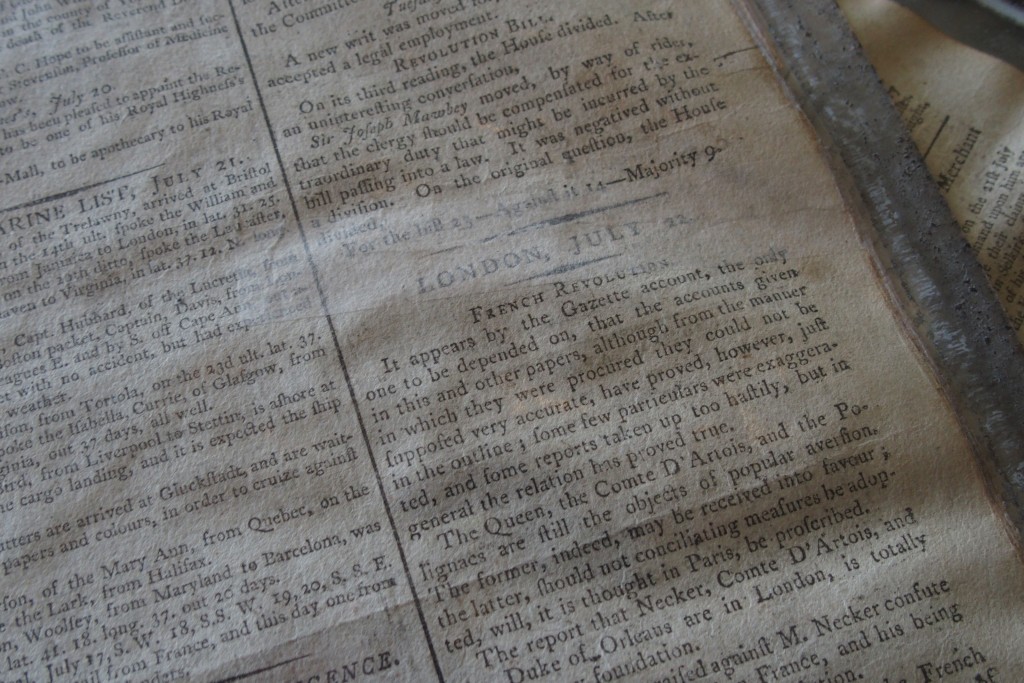 death of the Reverend D
. C. Hope to be assistant and suc-
Stevenson, Professor of Medicine
July 20
has been pleased to appoint the Re-
to be one of his Royal Highness's
-Mall, to be apothecary to his Royal
ARINE LIST, JULY 21.
of the Trelawny, arrived at Bristol
the 14th ult. spoke the William and
from Jamaica to London, in lat. 31. 25.
on the 19th ditto, spoke the
to Virginia, in lat. 37. 12. N. long
Capt. Hubbard, of the Lucretia, from
packet, Captain, Davis, from
leagues E. and by S. off Cape
with no accident, but had
weather.
from Tortola, on the 23d ult. lat. 37.
spoke the Iſabella, Currie, of Glaſgow, from
out 37 days, all well.
from Liverpool to Stettin, is aſhore at
cargo landing, and it is expected the ſhip
are arrived at Gluckſtadt, and are wait-
papers and colours, in order to cruize againſt
of the Mary Ann, from Quebec, on the
the Lark, from Halifax.
Woolſey, from Maryland to Barcelona, was
lat. 41. 18. long. 37. out 20 days.
July 17, S. W. 18, S.S. W. 19, 20, S. S. E.
from France, and this day one from
ENCE.
the Committee
A new writ was moved for,
accepted a legal employment.
REVOLUTION BILL.
On its third reading, the House divided. After
an unintereſting converſation,
Sir Joſeph Mawbey moved, by way of rider,
that the clergy ſhould be compenſated for the ex-
traordinary duty that might be incurred by the
bill paſſing into a law. It was negatived without
a diviſion. On the original queſtion, the House
divided,
For the bill 23—Againſt it 14—Majority 9
LONDON, JULY 22
FRENCH REVOLUTION.
It appears by the Gazette account, the only
one to be depended on, that the accounts given
in this and other papers, although from the manner
in which they were procured they could not be
ſuppoſed very accurate, have proved, however, juſt
in the outline; ſome few particulars were exaggera-
ted, and ſome reports taken up too haſtily, but in
general the relation has proved true.
The Queen, the Comte D'Artois, and the Po-
lignacs are ſtill the objects of popular averſion.
The former, indeed, may be received into favour;
the latter, ſhould not conciliating meaſures be adop-
ted, will, it is thought in Paris, be proſcribed.
The report that Necker, Comte D'Artois, and
Duke of Orleans are in London, is totally
foundation.
raiſed againſt M. Necker confute
France, and his being
French
Merchant